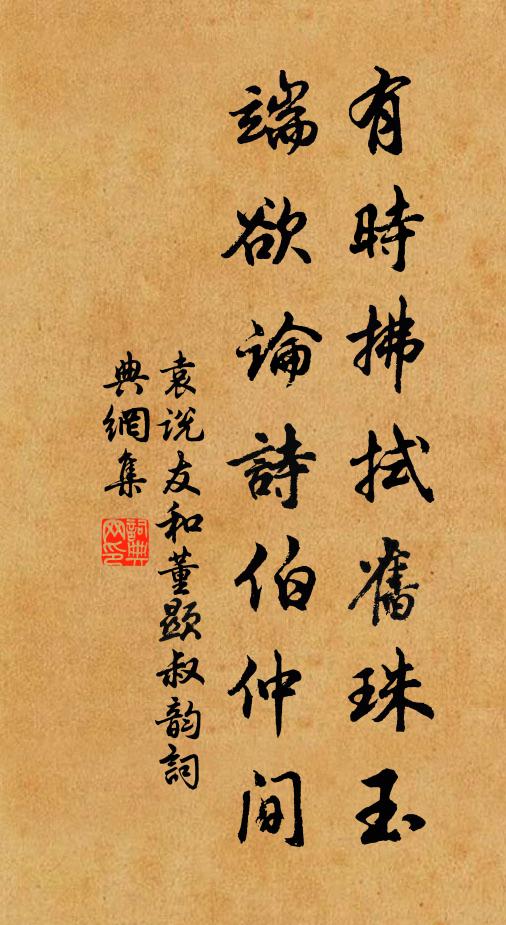 有時拂拭舊珠玉
端欲論詩伯仲間
袁说友和董顯叔韵詞
典網集
詞典網印